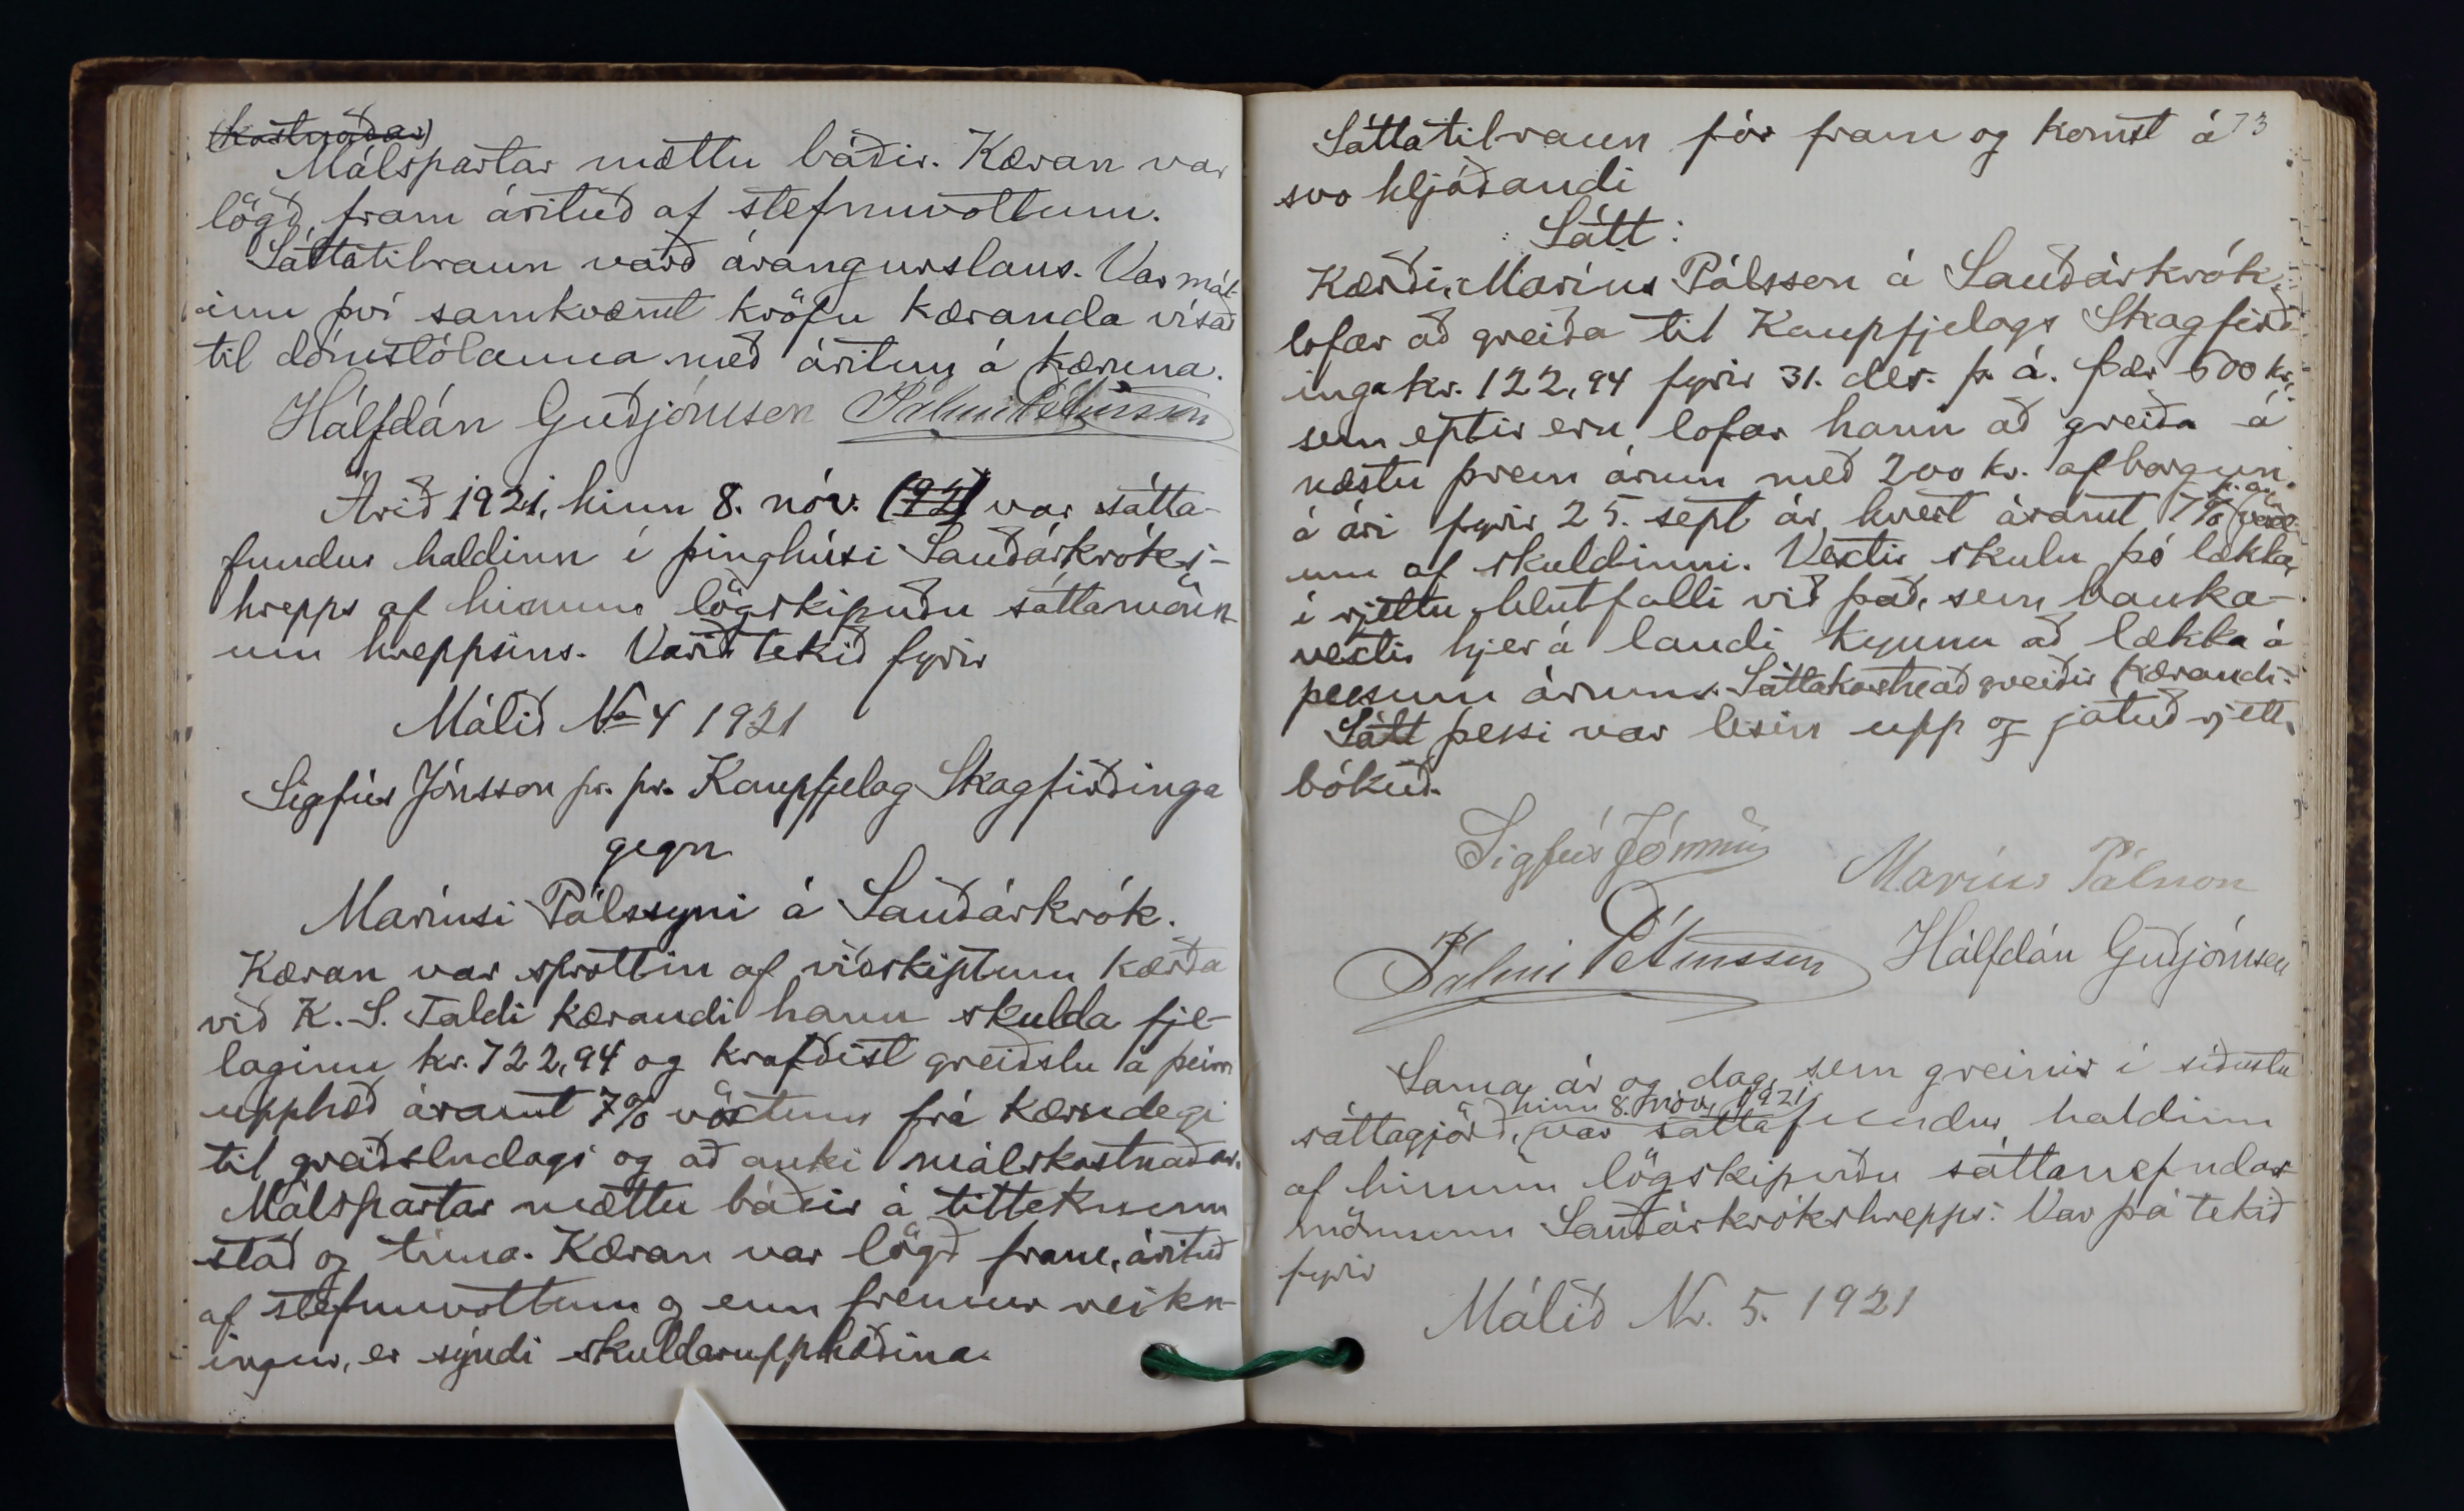 (kostnaðar)
Málspartar mættu báðir. Kæran var
lögð fram árituð af stefnuvottum.
Sáttatilraun varð árangurslaus. Var mál-
inu því samkvæmt kröfu kæranda vísað
til dómstólanna með áritun á kæruna.
Hálfdán Guðjónsson Pálmi Pétursson
Árið 1921, hinn 8. nóv. (92) var sátta-
fundur haldinn í þinghúsi Sauðárkróks-
hrepps af hinum lögskipuðu sáttamönn-
um hreppsins. Varð tekið fyrir
Málið No 4 1921
Sigfús Jónsson pr. pr. Kaupfjelag Skagfirðinga
gegn
Maríusi Pálssyni á Sauðárkrók.
Kæran var sprottin af viðskiptum kærða
við K. S. Taldi kærandi hann skulda fje-
laginu kr. 722,94 og krafðist greiðslu á þeirri
upphæð ásamt 7% vöxtum frá kærudegi
til greiðsludags og að auki málskostnaðar.
Málspartar mættu báðir á tilteknum
stað og tíma. Kæran var lögð fram, árituð
af stefnuvottum og enn fremur reikn-
ingur, er sýndi skuldarupphæðina.
73
Sáttatilraun fór fram og komst á
svo hljóðandi
Sátt:
Kærði, Maríus Pálsson á Sauðárkrók,
lofar að greiða til Kaupfjelags Skagfirð
inga kr. 122,94 fyrir 31. des. þ. á. Þær 600 kr.
sem eptir eru, lofar hann að greiða á
næstu þrem árum með 200 kr. afborgun
á ári fyrir 25. sept ár hvert ásamt 7% p. a. vöxt-
um af skuldinni. Vextir skulu þó lækka
í rjettu hlutfalli við það, sem banka-
vextir hjer á landi kynnu að lækka á
þessum árum. Sáttakostnað greiðir kærandi.
Sátt þessi var lesin upp og játuð rjett
bókuð.
Sigfús Jónsson
Maríus Pálsson
Pálmi Pétursson Hálfdán Guðjónsson
Sama ár og dag, sem greinir í síðustu
hinn 8. nóv. 1921,
sáttagjörð, var sáttafundur haldinn
af hinum lögskipuðu sáttanefndar
mönnum Sauðárkrókshrepps. Var þá tekið
fyrir
Málið Nr. 5. 1921